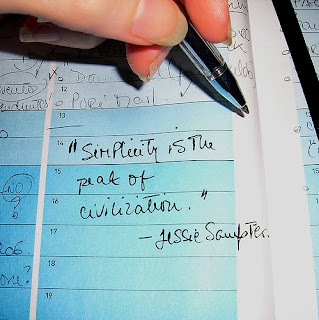 12
13
14 "Simplicity is the
15 peak of
16 civilization."
17 – Jessie Sampter.
18
19
NO
?